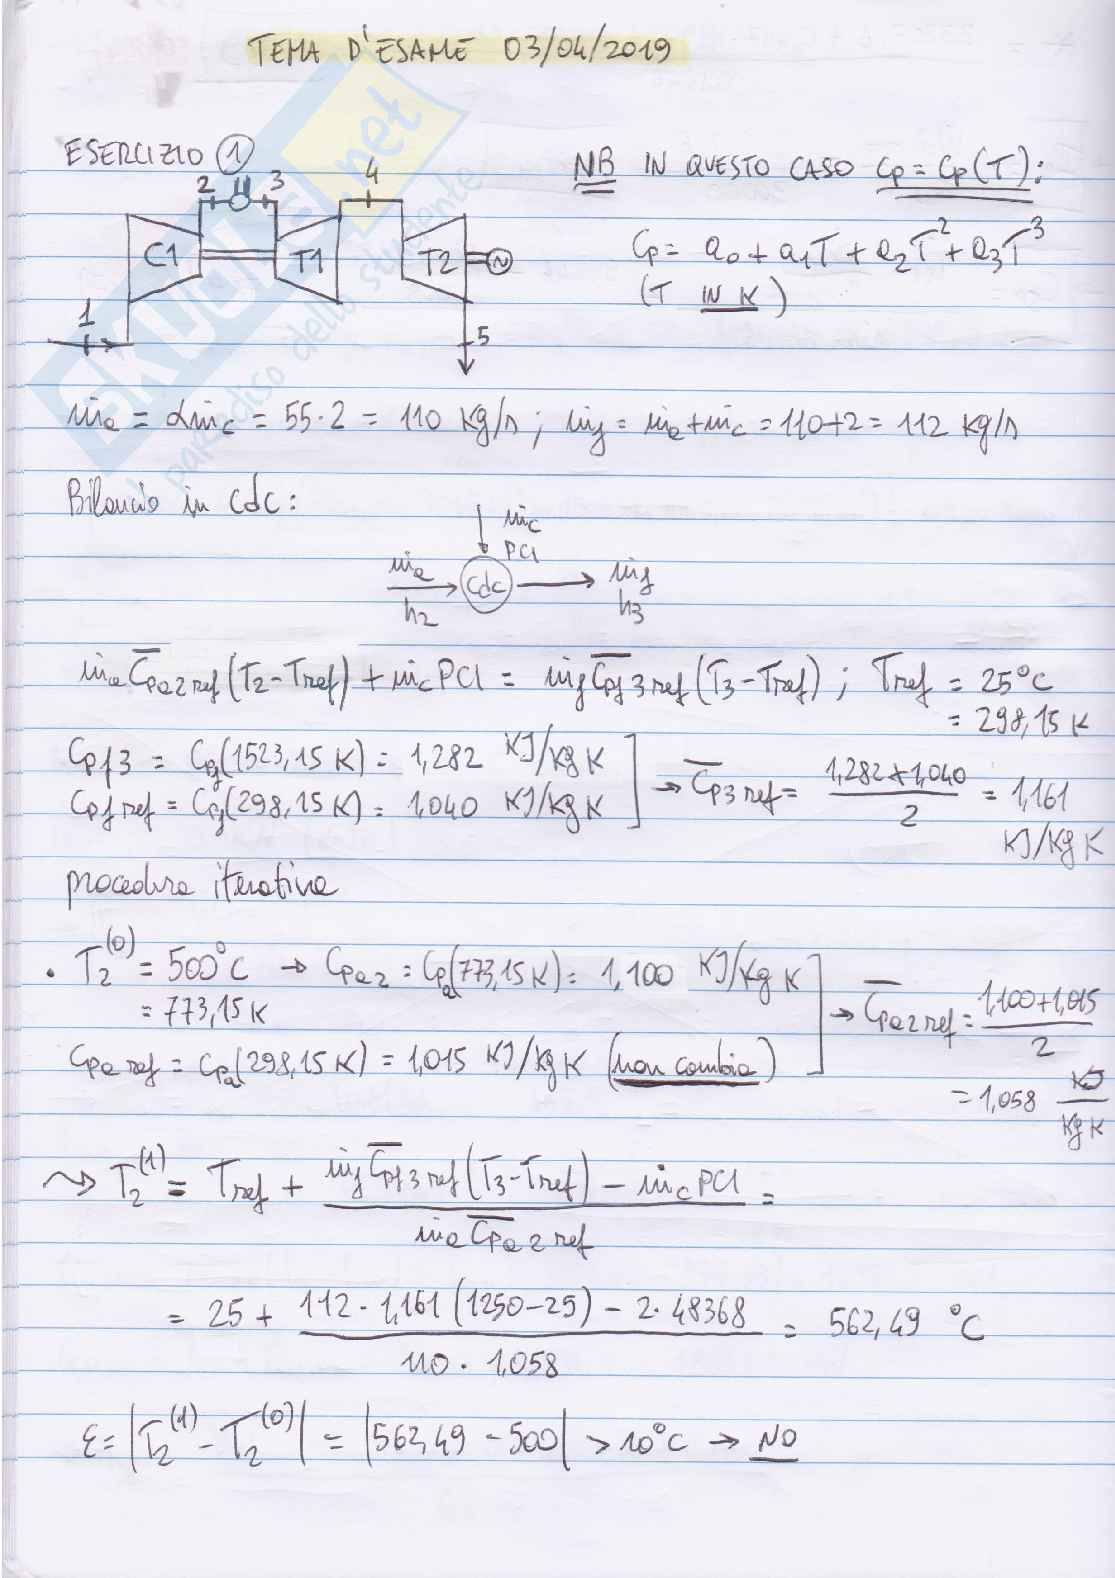 TEMA D'ESAME 03/04/2019
ESERCIZIO 1
NB IN QUESTO CASO Cp = Cp(T):
Cp = a0 + a1T + a2T² + a3T³
(T IN K)
1 C1 2 3 T1 4 T2 ~ 5
ṁa = αṁc = 55·2 = 110 kg/s; ṁf = ṁa + ṁc = 110+2 = 112 kg/s
Bilancio in cdc:
ṁc
PCI
ṁa cdc ṁf
h2 h3
ṁa C̄pa2ref (T2 - Tref) + ṁc PCI = ṁf C̄pf3ref (T3 - Tref); Tref = 25°C
= 298,15 K
Cpf3 = Cpf(1523,15 K) = 1,282 KJ/kg K
Cpf ref = Cpf(298,15 K) = 1,040 KJ/kg K
→ C̄p3ref = (1,282+1,040)/2 = 1,161
KJ/kg K
procedura iterativa
• T2^(0) = 500°C → Cpa2 = Cpa(773,15 K) = 1,100 KJ/kg K
= 773,15 K
Cpa ref = Cpa(298,15 K) = 1,015 KJ/kg K (non cambia)
→ C̄pa2ref = (1,100+1,015)/2
= 1,058 KJ/kg K
⇝ T2^(1) = Tref + (ṁf C̄pf3ref (T3 - Tref) - ṁc PCI)/(ṁa C̄pa2ref) =
= 25 + (112 · 1,161 (1250-25) - 2·48368)/(110 · 1,058) = 562,49 °C
ε = |T2^(1) - T2^(0)| = |562,49 - 500| > 10°C → NO
SKUOLA.net
il paradiso dello studente